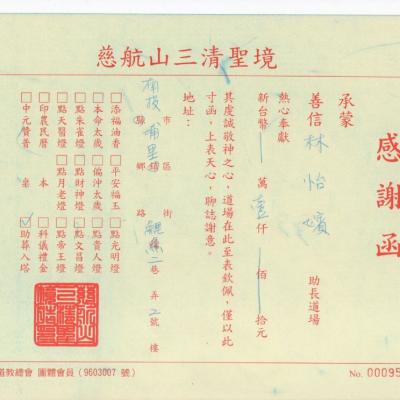 慈航山三清聖境
感謝函
承蒙
善信 林怡嬪 助長道場
熱心奉獻
新台幣 萬壹仟 佰 拾元
其虔誠敬神之心，道場在此至表欽佩，僅以此
寸函，上表天心，聊誌謝意。
地址：南投 縣市 埔里 鄉鎮區 路街 二巷 弄 2號 樓
□添福油香 □平安福玉 □點光明燈
□本命太歲 □偏沖太歲 □點貴人燈
□點朱雀燈 □點財神燈 □點文昌燈
□點天醫燈 □點月老燈 □點帝王燈
□印農民曆 本 □科儀禮金
□中元贊普 桌 ☑助葬入塔
道教總會 團體會員（9603007 號）
No. 00095